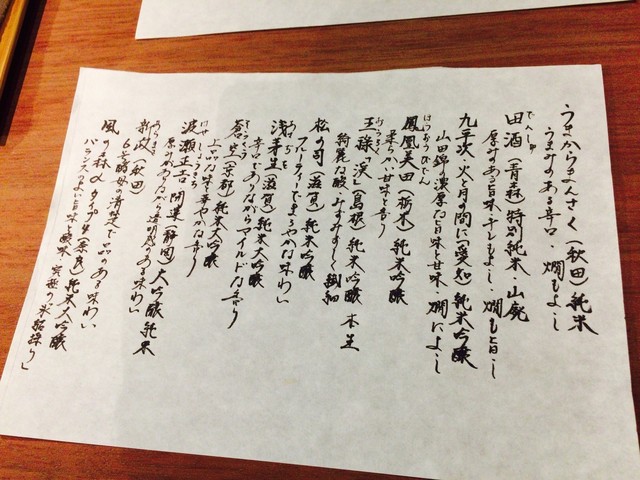 うまからまんさく（秋田）純米
うまみのある辛口・燗もよし
でんしゅ
田酒（青森）特別純米 山廃
厚みのある旨味・キレもよし、燗も旨し
九平次・火と月の間に（愛知）純米吟醸
山田錦の濃厚な旨味と甘味、燗によし
ほうおうびでん
鳳凰美田（栃木）純米吟醸
柔らかい甘味と香り
王祿「渓」（島根）純米吟醸 本生
綺麗な酸、みずみずしく繊細
松の司（滋賀）純米吟醸
フルーティーでまろやかな味わい
あさぢを
浅茅生（滋賀）純米大吟醸
辛口でありながらマイルドな香り
そうくう
蒼空（京都）純米大吟醸
上品な味と華やかな香り
はせしょうきち
波瀬正吉 開運（静岡）大吟醸
厚みがありながら透明感がある味わい
新政（秋田）純米
6号酵母・清楚で品のある味わい
風の森 α タイプ4（奈良）純米大吟醸
バランスのよい旨味と酸味